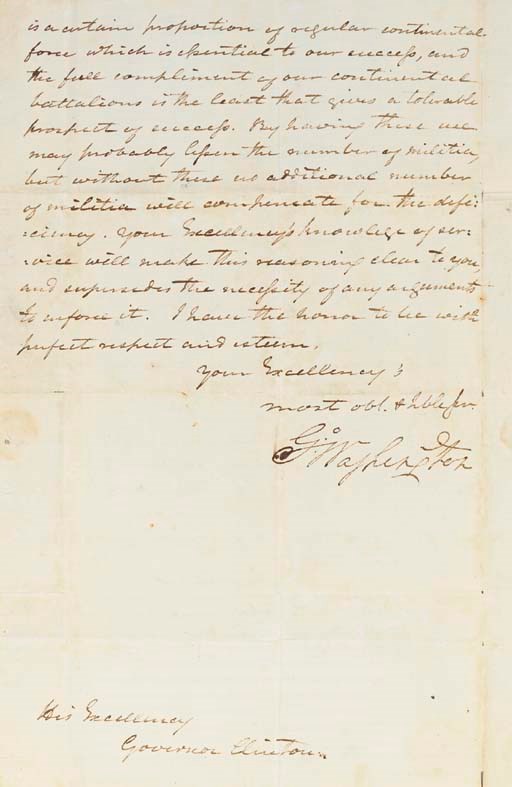 is a certain proportion of regular continental
force which is essential to our success, and
the full compliment of our continental
battalions is the least that gives a tolerable
prospect of success. By having these we
may probably lessen the number of militia,
but without these no additional number
of militia will compensate for the defi:
:ciency. Your Excellency's knowlege of ser:
:vice will make this reasoning clear to you,
and supersedes the necessity of any arguments
to inforce it. I have the honor to be with
perfect respect and esteem,
Your Excellency's
most obt. & hble Ser.
Go: Washington
His Excellency
Governor Clinton.